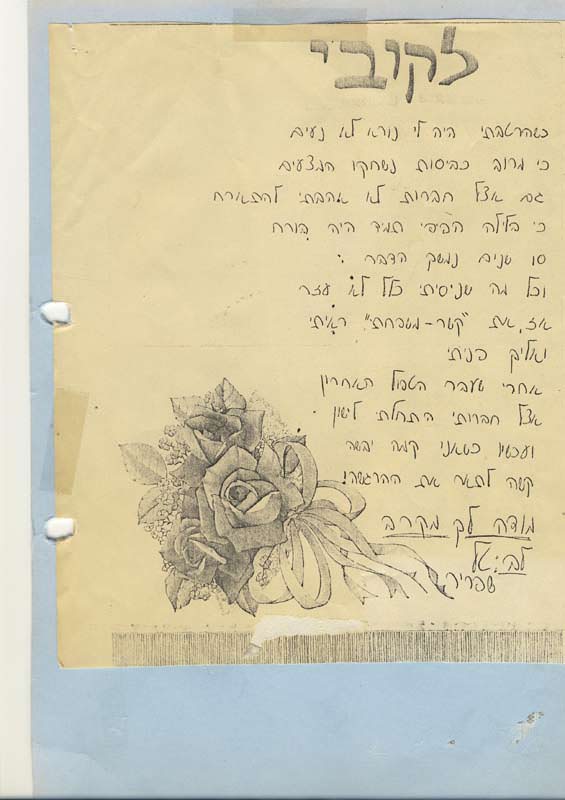 לקובי
כשהרטבתי היה לי נורא לא נעים
כי מרוב כביסות נשחקו המצעים
גם אצל חברות לא אהבתי להתארח
כי בלילה הפיפי תמיד היה בורח
סו שנים נמשך הדבר
וכל מה שניסיתי כלל לא עזר
אז, את "קשר-משפחתי" ראיתי
ואליך פניתי
אחרי שעבר הטפול האחרון
אצל חברותי התחלתי לישון
ועכשיו כשאני קמה יבשה
קשה לתאר את ההרגשה!
מודה לך מקרב
לב: טל
שפריר